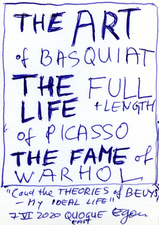 THE ART
of BASQUIAT
THE FULL
LIFE +LENGTH
of PICASSO
THE FAME of
WARHOL
"(and the THEORIES of BEUYS)
– My IDEAL LIFE"
7 VI 2020 QUOGUE Egon
EAST